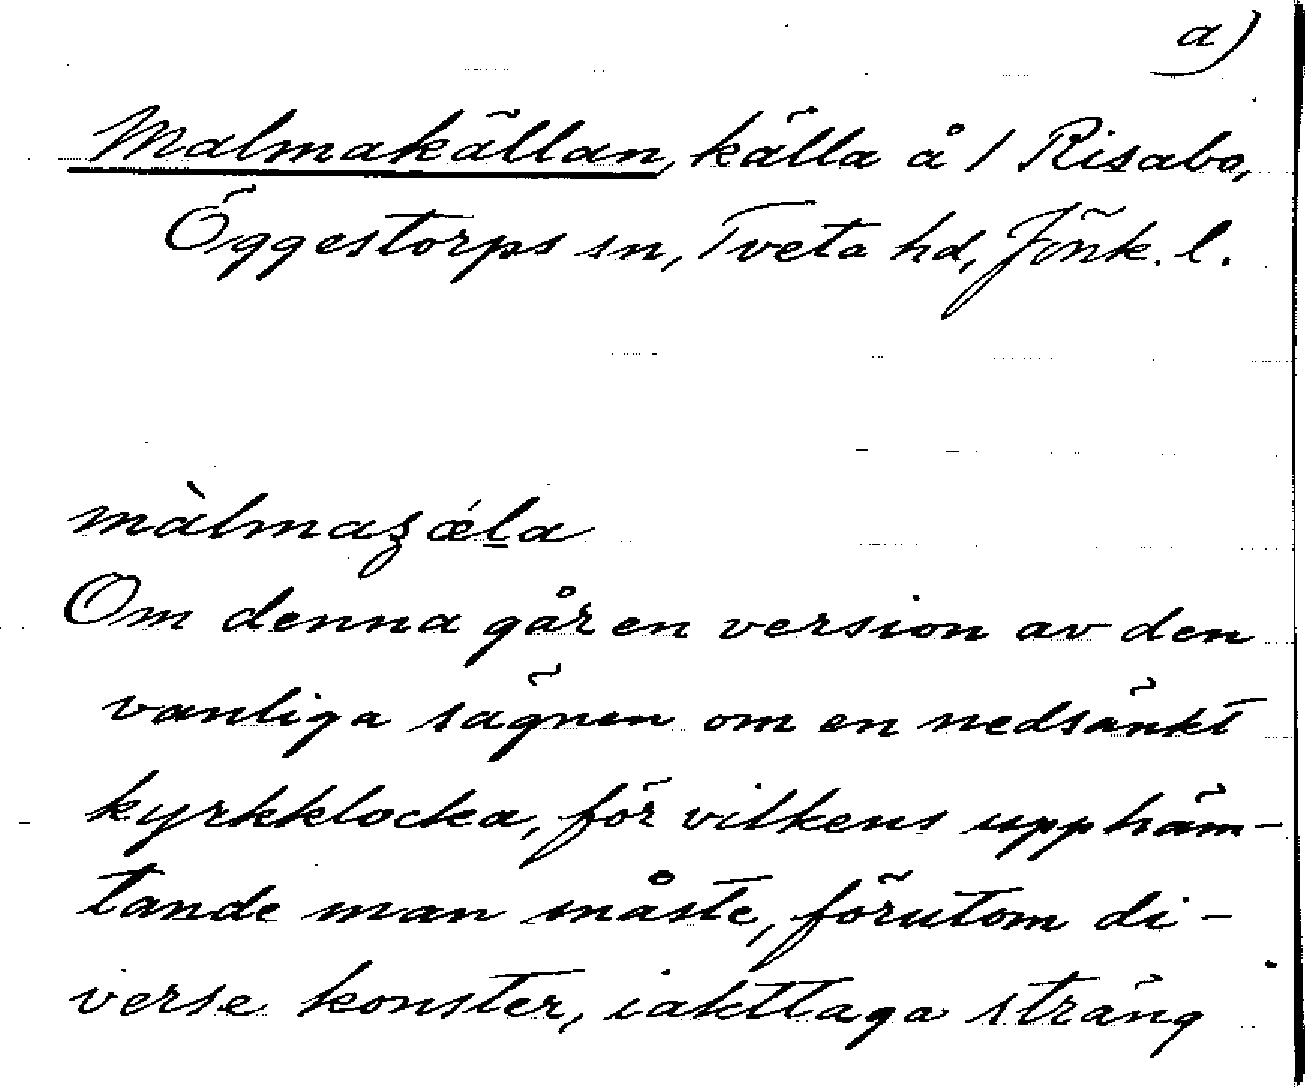 a)
Malmakällan, källa å 1 Risabo,
Öggestorps sn, Tveta hd, Jönk. l.
màlmaʒǽl̲a
Om denna går en version av den
vanliga sägnen om en nedsänkt
kyrkklocka, för vilkens upphäm-
tande man måste, förutom di-
verse konster, iakttaga sträng